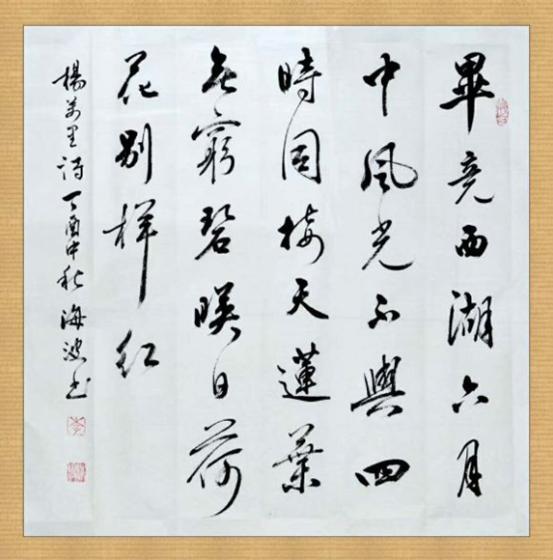 畢竟西湖六月
中風光不與四
時同接天蓮葉
無窮碧映日荷
花別样紅
楊萬里詩丁酉中秋海波書
李